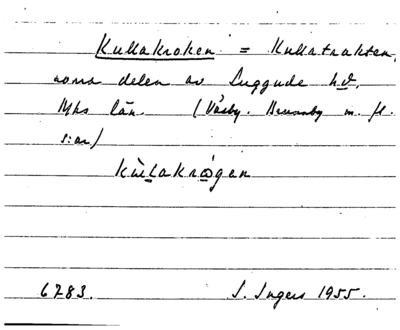 Kullakroken = Kullatrakten,
norra delen av Luggude hd,
Mhs län. (Väsby. Brunnby m. fl.
s:ar)
kùlakrågen
6283. I. Ingers 1955.